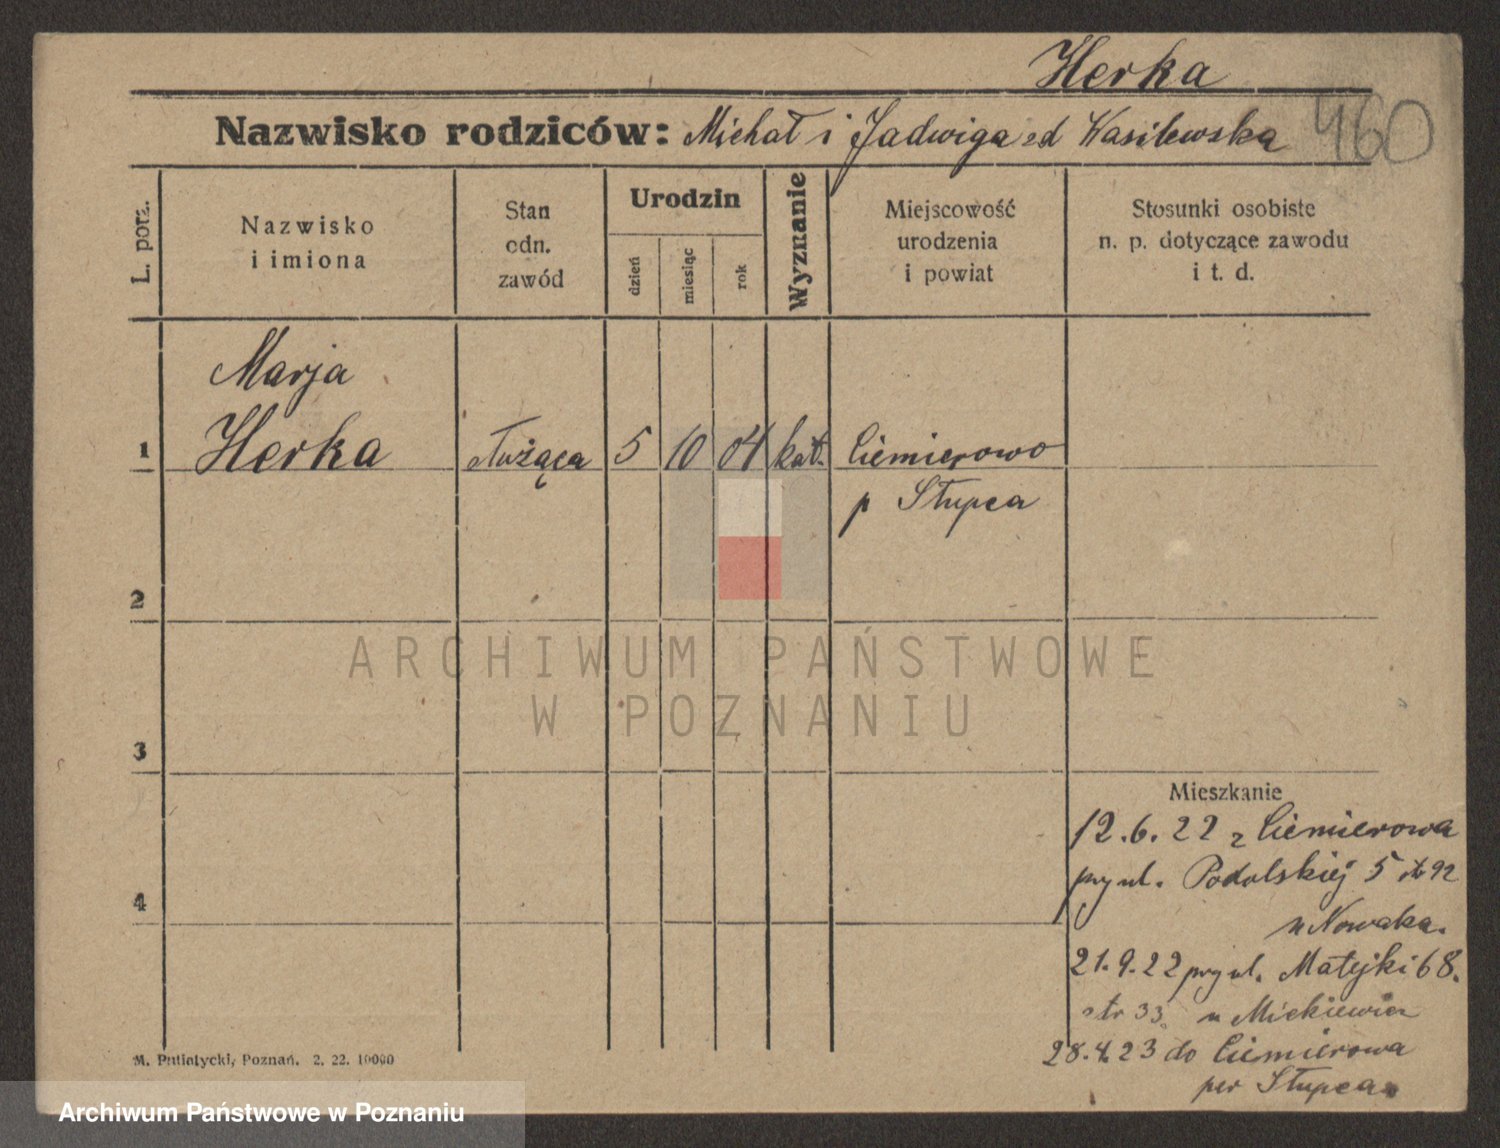 Herka
Nazwisko rodziców: Michał i Jadwiga zd Wasilewska 460
L. porz.
Nazwisko
i imiona
Stan
odn.
zawód
Urodzin
dzień
miesiąc
rok
Wyznanie
Miejscowość
urodzenia
i powiat
Stosunki osobiste
n. p. dotyczące zawodu
i t. d.
Marja
1 Herka służąca 5 10 04 kat. Ciemierowo
p Słupca
2
ARCHIWUM PAŃSTWOWE
W POZNANIU
3
Mieszkanie
12.6.22 z Ciemierowa
przy ul. Podolskiej 5 str 92
4
u Nowaka.
21.9.22 przy ul. Matejki 68.
str 33 u Mickiewicz
28.4.23 do Ciemierowa
per Słupca
M. Putiatycki, Poznań. 2. 22. 10000
Archiwum Państwowe w Poznaniu